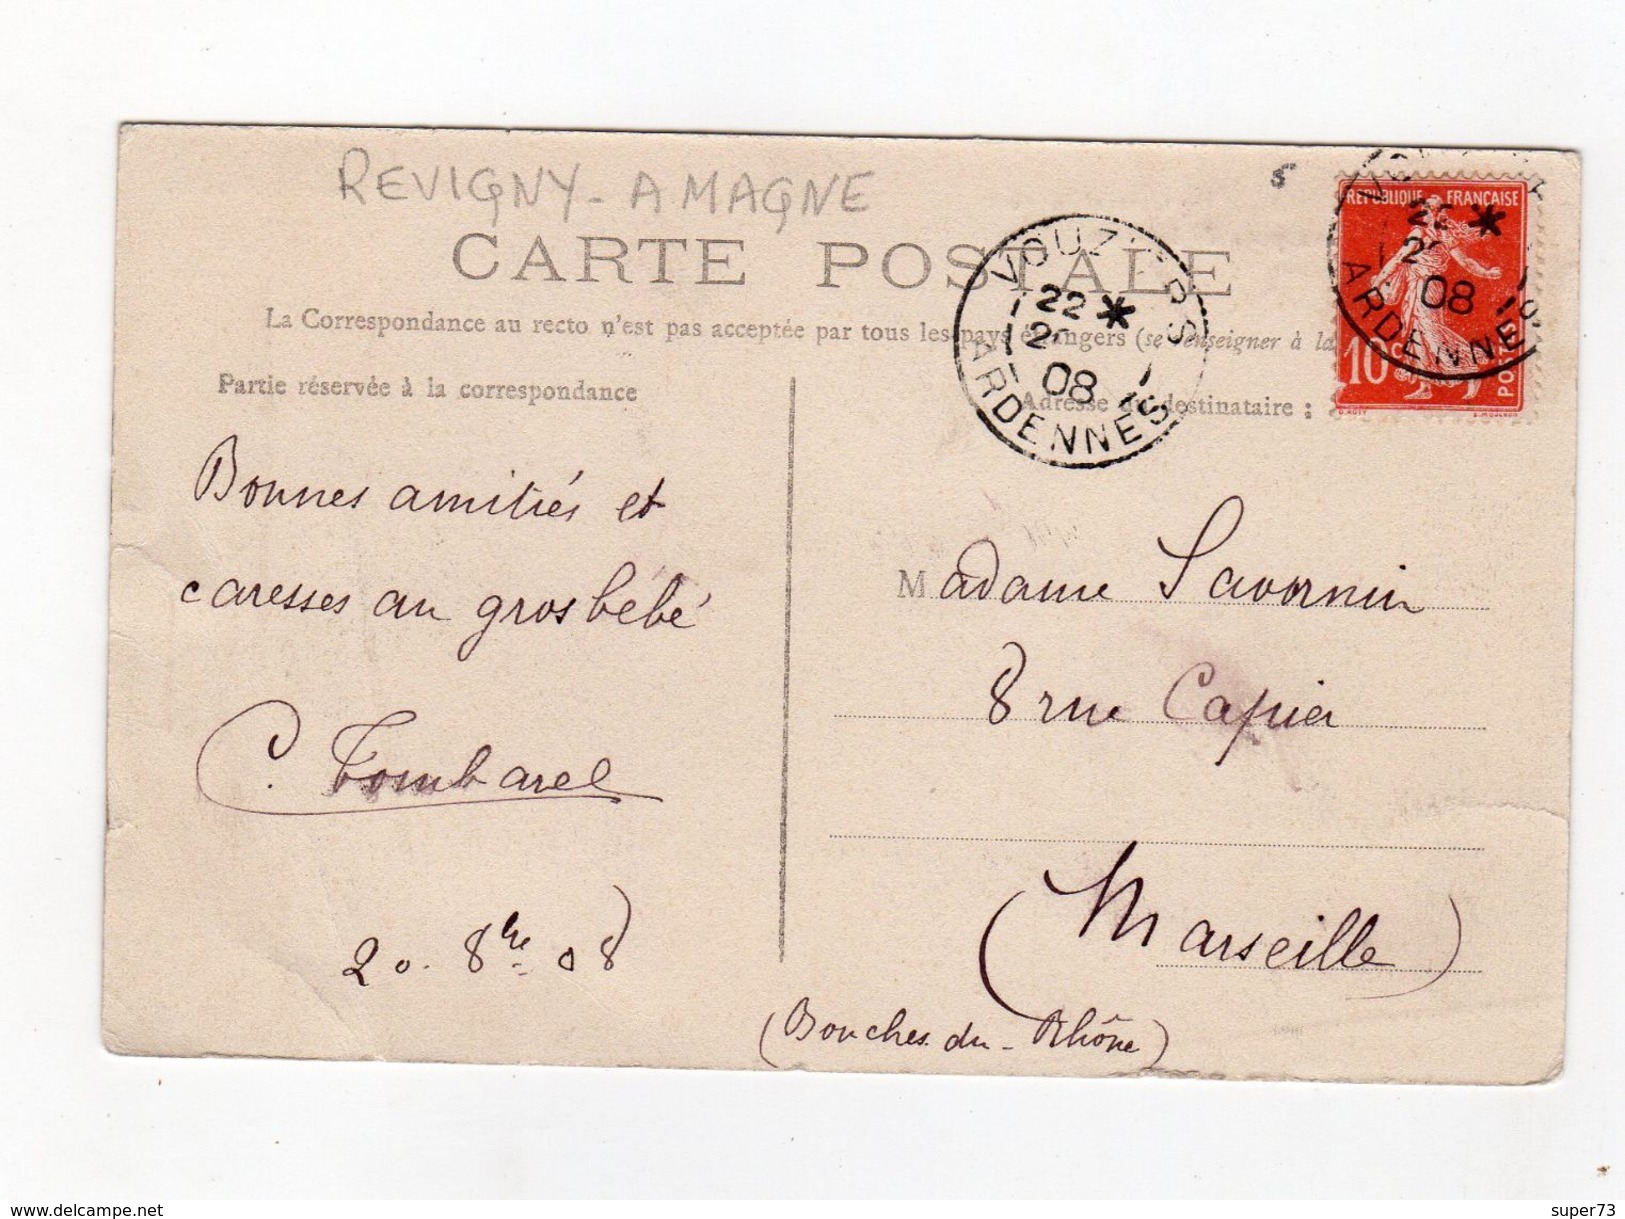 REVIGNY - AMAGNE
5
CARTE POSTALE
La Correspondance au recto n'est pas acceptée par tous les pays étrangers (se renseigner à la
Partie réservée à la correspondance
Adresse du destinataire :
VOUZIERS
22 *
08
ARDENNES
REPUBLIQUE FRANÇAISE
22 *
08
ARDENNES
10c
Bonnes amitiés et
caresses au gros bébé
C. Tombarel
20. 8bre 08
Madame Savornin
8 rue Capier
(Marseille)
(Bouches-du-Rhône)
www.delcampe.net
super73